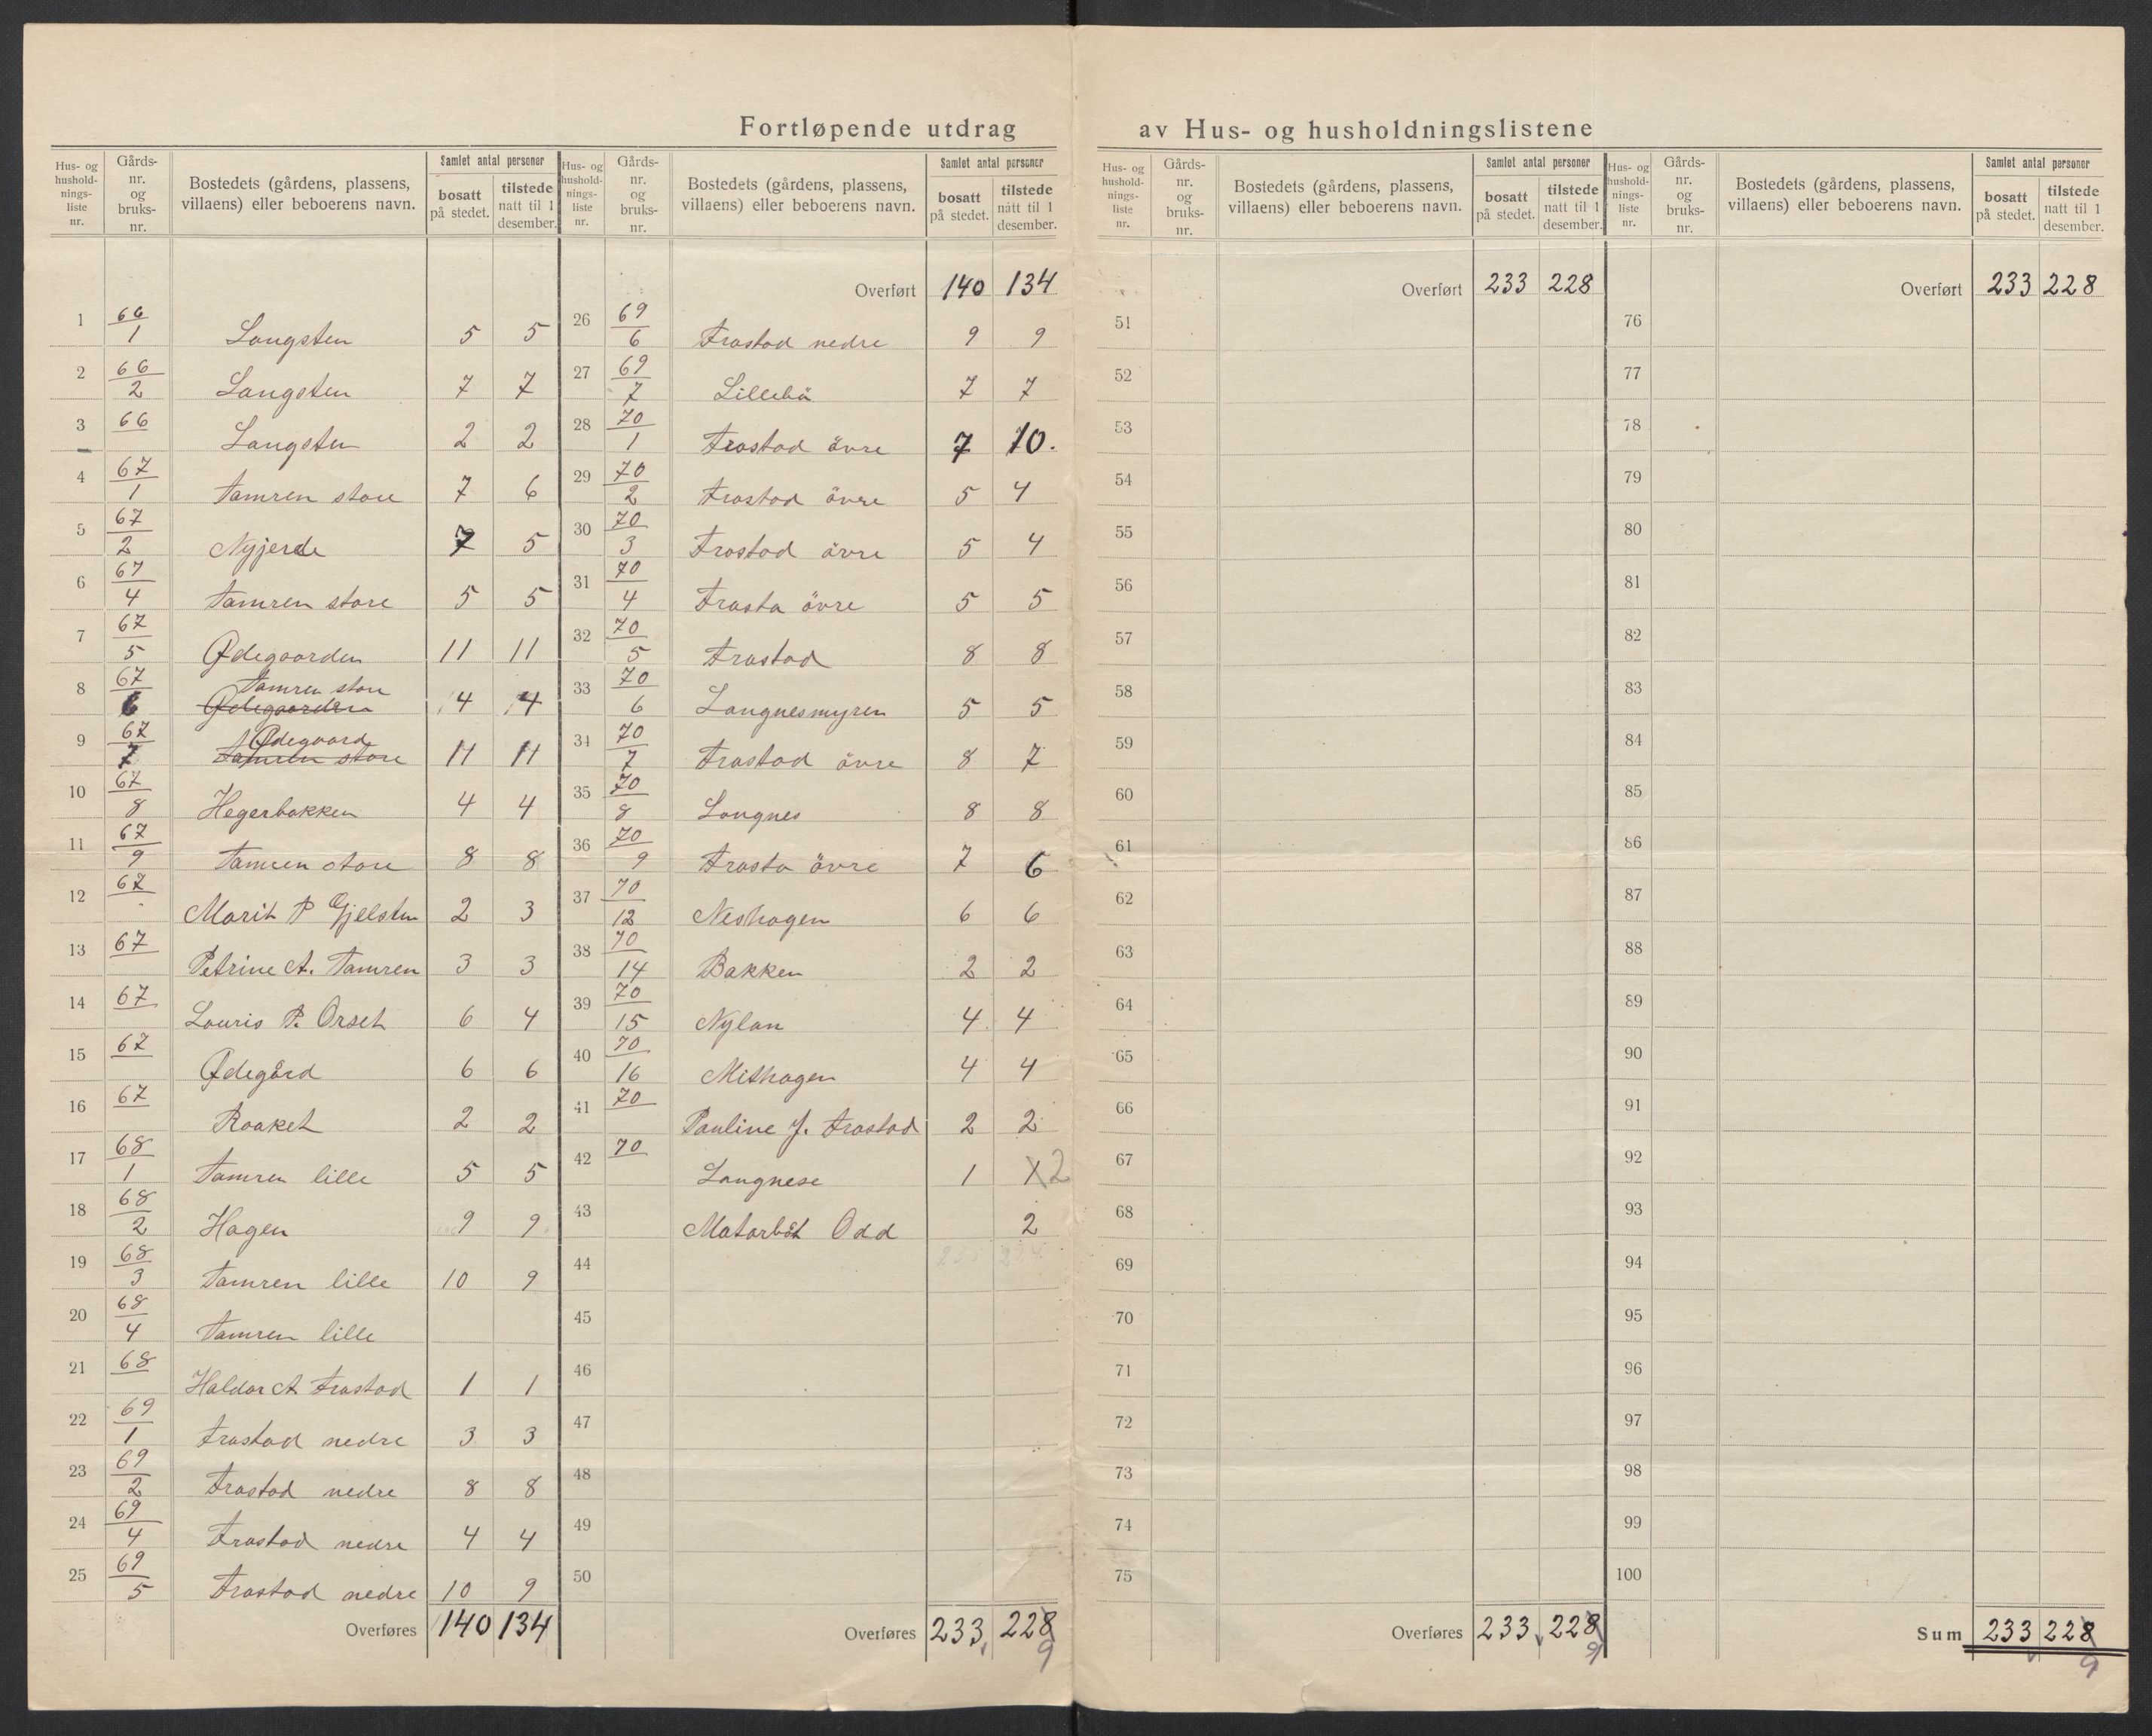 Fortløpende utdrag av Hus- og husholdningslistene
Hus- og husholdnings-liste nr. Gårds-nr. og bruks-nr. Bostedets (gårdens, plassens, villaens) eller beboerens navn. Samlet antal personer bosatt på stedet. tilstede natt til 1 desember.
1 66/1 Langsten 5 5
2 66/2 Langsten 7 7
3 66 Langsten 2 2
4 67/1 Tamren store 7 6
5 67/2 Nyjerde 7 5
6 67/4 Tamren store 5 5
7 67/5 Ødegaarden 11 11
8 67/6 Tamren store Ødegaarden 4 4
9 67/7 Ødegaard Tamren store 11 11
10 67/8 Hegerbakken 4 4
11 67/9 Tamren store 8 8
12 67 Marit P Gjelsten 2 3
13 67 Petrine A. Tamren 3 3
14 67 Louris P. Orset 6 4
15 67 Ødegård 6 6
16 67 Raaket 2 2
17 68/1 Tamren lille 5 5
18 68/2 Hagen 9 9
19 68/3 Tamren lille 10 9
20 68/4 Tamren lille
21 68 Haldor A Frostad 1 1
22 69/1 Frostad nedre 3 3
23 69/2 Frostad nedre 8 8
24 69/4 Frostad nedre 4 4
25 69/5 Frostad nedre 10 9
Overføres 140 134
Hus- og husholdnings-liste nr. Gårds-nr. og bruks-nr. Bostedets (gårdens, plassens, villaens) eller beboerens navn. Samlet antal personer bosatt på stedet. tilstede natt til 1 desember.
Overført 140 134
26 69/6 Frostad nedre 9 9
27 69/7 Lillebö 7 7
28 70/1 Frostad övre 7 10.
29 70/2 Frostad övre 5 4
30 70/3 Frostad övre 5 4
31 70/4 Frosta övre 5 5
32 70/5 Frostad 8 8
33 70/6 Langnesmyren 5 5
34 70/7 Frostad övre 8 7
35 70/8 Langnes 8 8
36 70/9 Frosta övre 7 6
37 70/12 Neshagen 6 6
38 70/14 Bakken 2 2
39 70/15 Nylan 4 4
40 70/16 Mithagen 4 4
41 70 Pauline J. Frostad 2 2
42 70 Langnese 1 X2
43 Matorbåt Odd 2
44
45
46
47
48
49
50
Overføres 233 228 9
Hus- og husholdnings-liste nr. Gårds-nr. og bruks-nr. Bostedets (gårdens, plassens, villaens) eller beboerens navn. Samlet antal personer bosatt på stedet. tilstede natt til 1 desember.
Overført 233 228
51
52
53
54
55
56
57
58
59
60
61
62
63
64
65
66
67
68
69
70
71
72
73
74
75
Overføres 233 228 9
Hus- og husholdnings-liste nr. Gårds-nr. og bruks-nr. Bostedets (gårdens, plassens, villaens) eller beboerens navn. Samlet antal personer bosatt på stedet. tilstede natt til 1 desember.
Overført 233 228
76
77
78
79
80
81
82
83
84
85
86
87
88
89
90
91
92
93
94
95
96
97
98
99
100
Sum 233 228 9